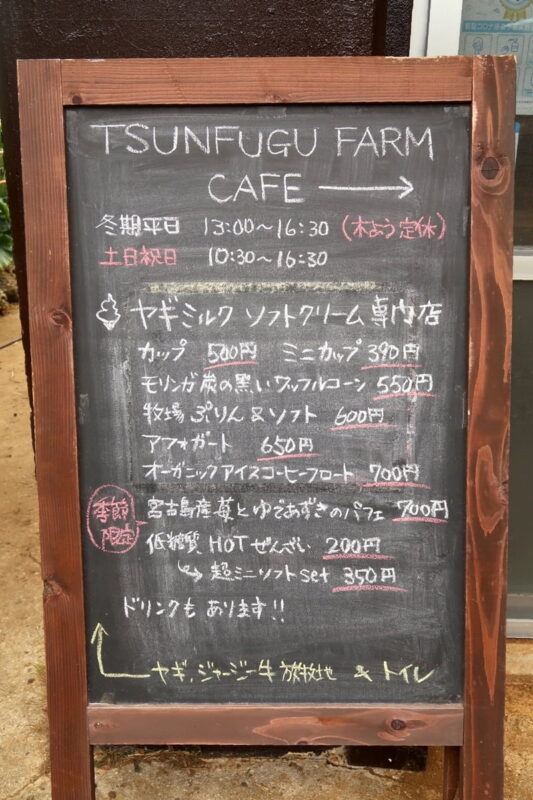 TSUNFUGU FARM
CAFE →
冬期平日 13:00〜16:30 (木よう定休)
土日祝日 10:30〜16:30
ヤギミルク ソフトクリーム専門店
カップ 500円 ミニカップ 390円
モリンガ炭の黒いワッフルコーン 550円
牧場ぷりん&ソフト 600円
アフォガート 650円
オーガニックアイスコーヒーフロート 700円
季節限定
宮古島産苺とゆであずきのパフェ 700円
低糖質HOTぜんざい 200円
超ミニソフトset 350円
ドリンクもあります!!
ヤギ、ジャージー牛放牧地 & トイレ